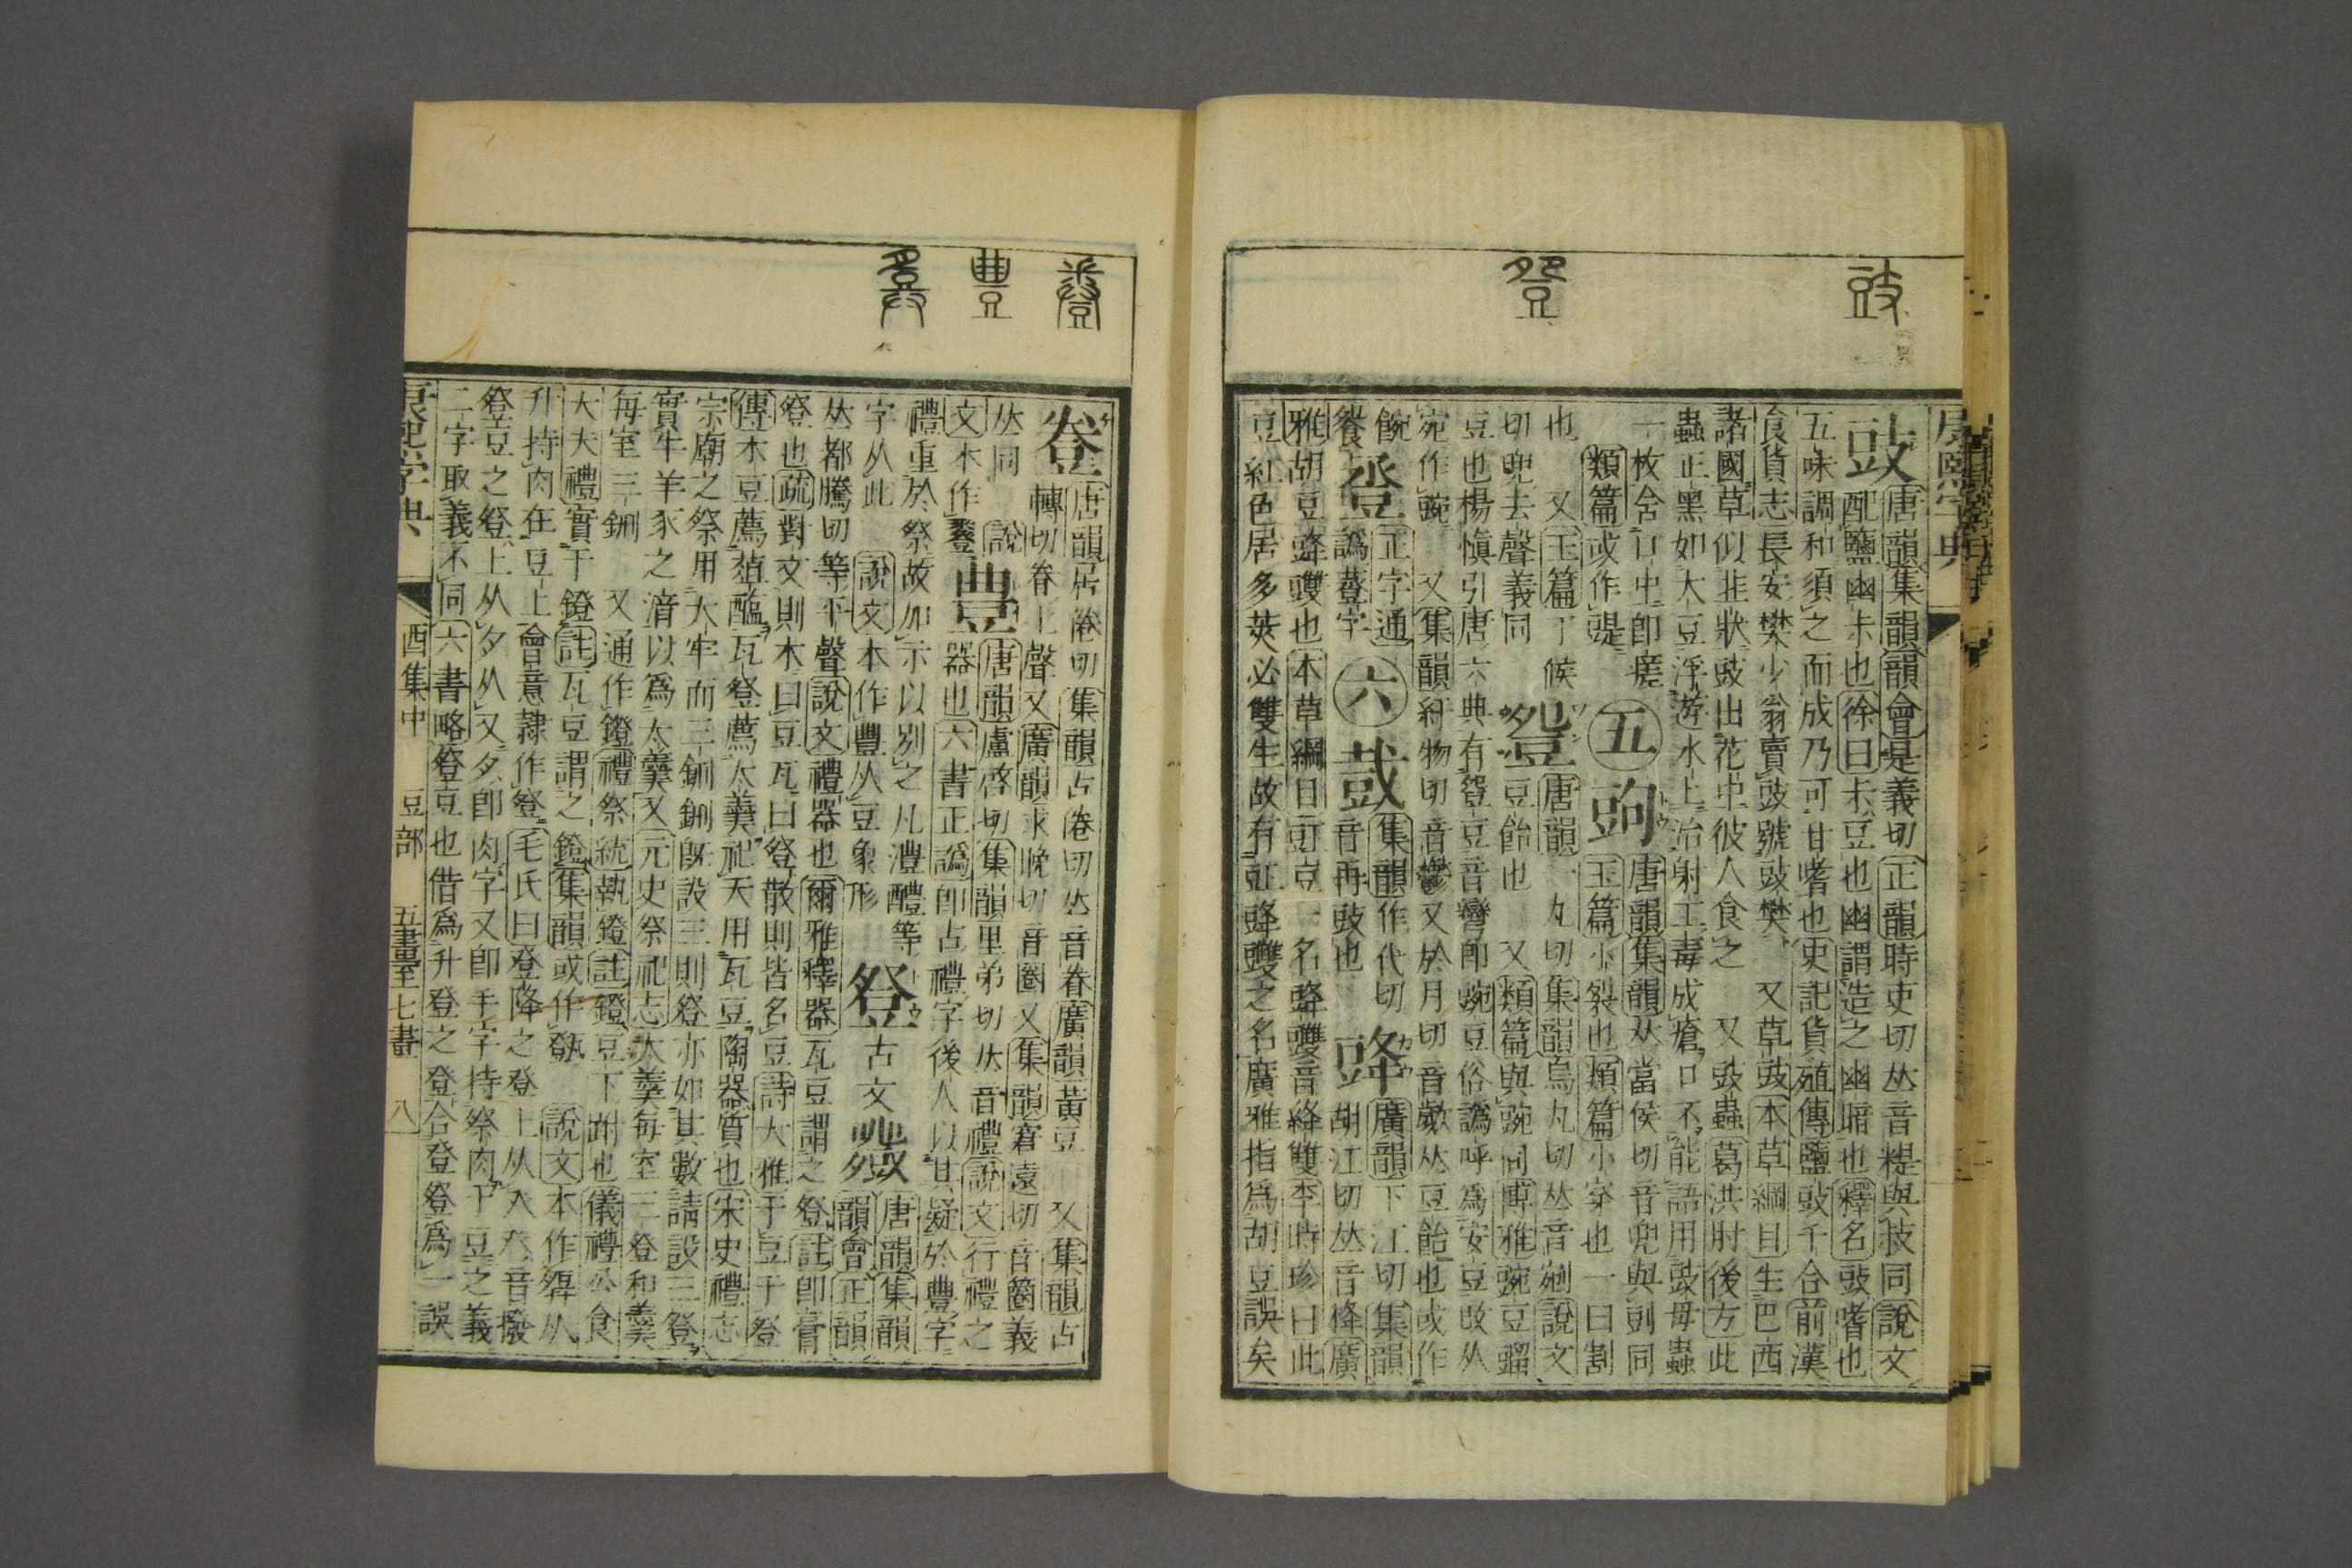 康熙字典
豉
唐韻集韻韻會是義切正韻時吏切𠀤音緹與䜴同說文
配鹽幽尗也徐曰尗豆也幽謂造之幽暗也釋名豉嗜也
五味調和須之而成乃可甘嗜也史記貨殖傳鹽豉千合前漢
食貨志長安樊少翁賣豉號豉樊 又草豉本草綱目生巴西
諸國草似韭狀豉出花中彼人食之 又豉蟲葛洪肘後方此
蟲正黑如大豆浮遊水上治射工毒成瘡口不能語用豉母蟲
一枚含口中卽瘥
五
唐韻集韻𠀤當侯切音兜與剅同
類篇或作
玉篇小裂也類篇小穿也一曰割
也 又玉篇丁候
切兜去聲義同
唐韻一丸切集韻烏丸切𠀤音剜說文
豆飴也 又類篇與豌同博雅豌豆䝁
豆也楊愼引唐六典有𧯡豆音彎卽豌豆俗譌呼爲安豆或从
宛作豌 又集韻紆物切音鬱又於月切音𠀤豆飴也或作
䬧
登 正字通
譌䔲字
六
䔲
集韻作代切
音再豉也
䜶
廣韻下江切集韻
胡江切𠀤音降廣
雅胡豆䜶䝄也本草綱目豇豆一名䜶䝄音絳雙李時珍曰此
豆紅色居多莢必雙生故有豇䜶䝄之名廣雅指爲胡豆誤矣
䜸
唐韻居倦切集韻古倦切𠀤音眷廣韻黃豆 又集韻古
轉切眷上聲又廣韻求晚切音圈又集韻窘遠切音圈義
𠀤同
說
文本作
豊
唐韻盧啓切集韻里弟切𠀤音禮說文行禮之
器也六書正譌卽古禮字後人以其疑於豐字
禮重於祭故加示以別之凡澧醴等
字从此
說文本作豐从豆象形
豋
古文
唐韻集韻
韻會正韻
𠀤都騰切等平聲說文禮器也爾雅釋器瓦豆謂之豋註卽膏
豋也疏對文則木曰豆瓦曰豋散則皆名豆詩大雅于豆于豋
傳木豆薦葅醢瓦豋薦太羹祀天用瓦豆陶器質也宋史禮志
宗廟之祭用大牢而三鉶鉶旣設三則豋亦如其數請設三豋
實牛羊豕之湆以爲太羹又元史祭祀志大羹每室三豋和羹
每室三鉶 又通作鐙禮祭統執鐙註鐙豆下跗也儀禮公食
大夫禮實于鐙註瓦豆謂之鐙集韻或作 說文本作𤼷从
升持肉在豆上會意隷作豋毛氏曰登降之登上从癶音撥
豋豆之豋上从夕从又夕卽肉字又卽手字持祭肉于豆之義
二字取義不同六書略豋豆也借爲升登之登合登豋爲一誤
康熙字典
酉集中
豆部
五畫至七畫
八